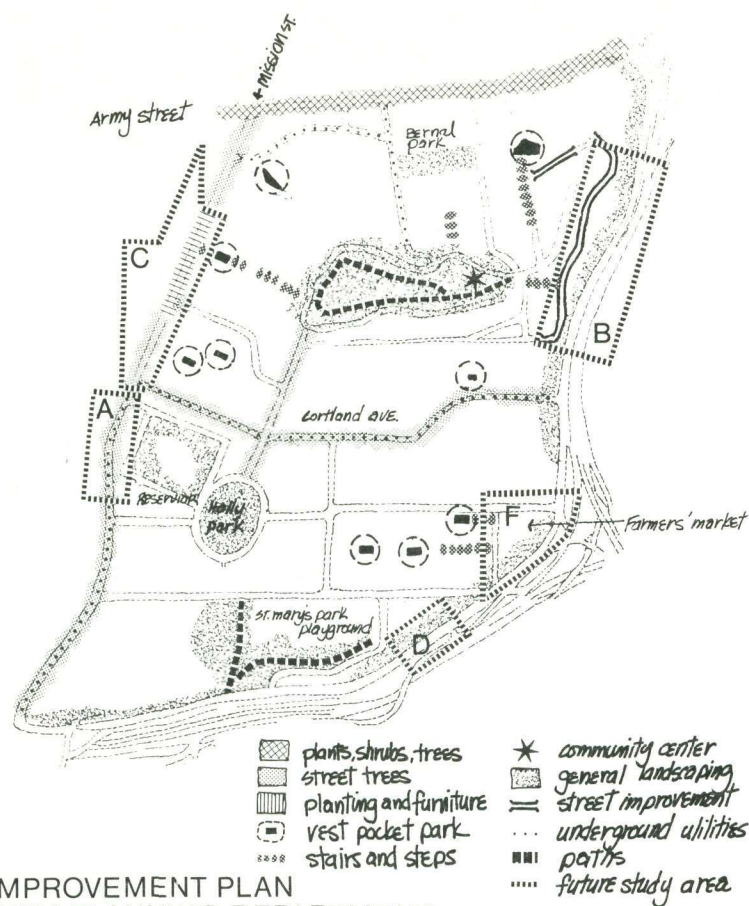 ← MISSION ST.
Army street
Bernal
park
C
B
A
Cortland AVE.
Reservoir
Holly
park
F
Farmers' market
St. marys park
playground
D
plants, shrubs, trees
street trees
planting and furniture
vest pocket park
stairs and steps
community center
general landscaping
street improvement
underground utilities
paths
future study area
MPROVEMENT PLAN